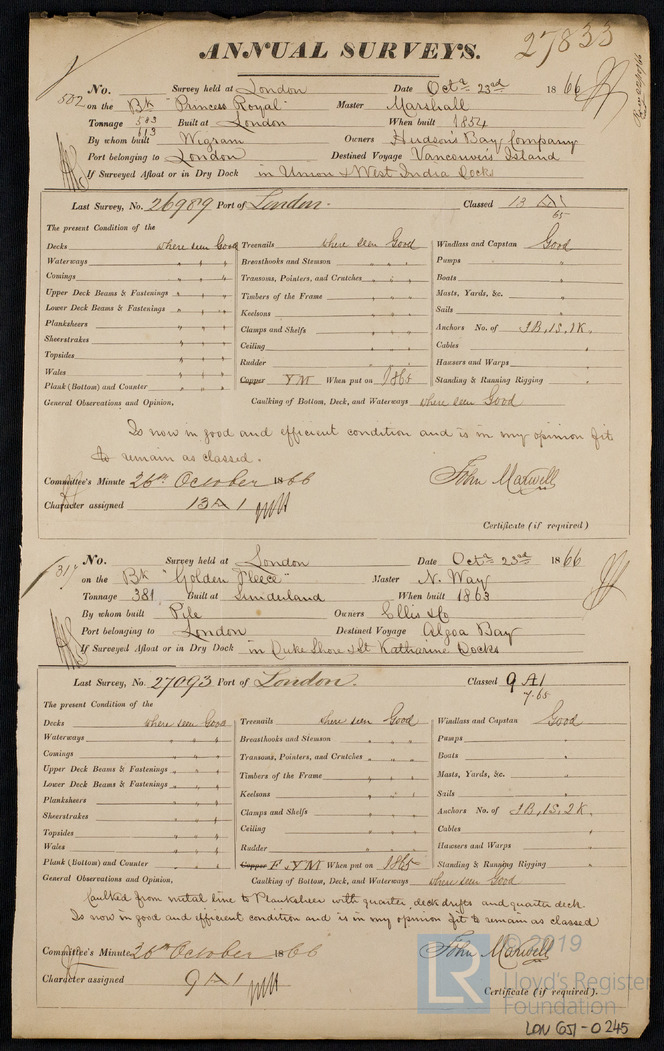 ANNUAL SURVEYS. 27833
No. 502 Survey held at London Date Octr 23rd 1866
on the Bk "Princess Royal" Master Marshall
Tonnage 583 613 Built at London When built 1854
By whom built Wigram Owners Hudson's Bay Company
Port belonging to London Destined Voyage Vancouver's Island
If Surveyed Afloat or in Dry Dock in Union & West India Docks
Last Survey, No. 26989 Port of London. Classed 13 A1 65
The present Condition of the
Decks where seen Good Treenails where seen Good Windlass and Capstan Good
Waterways " " " Breasthooks and Stemson " " " Pumps "
Comings " " " Transoms, Pointers, and Crutches " " " Boats "
Upper Deck Beams & Fastenings " " " Timbers of the Frame " " " Masts, Yards, &c. "
Lower Deck Beams & Fastenings " " " Keelsons " " " Sails "
Planksheers " " " Clamps and Shelfs " " " Anchors No. of 3B, 1S, 1K.
Sheerstrakes " " " Ceiling " " " Cables "
Topsides " " " Rudder " " " Hawsers and Warps "
Wales " " " Copper YM When put on 1865 Standing & Running Rigging "
Plank (Bottom) and Counter " " "
General Observations and Opinion, Caulking of Bottom, Deck, and Waterways where seen Good
Is now in good and efficient condition and is in my opinion fit
to remain as classed.
Committee's Minute 26th October 1866 John Maxwell
Character assigned 13 A 1
Certificate (if required)
No. 317 Survey held at London Date Octr 23rd 1866
on the Bk "Golden Fleece" Master N. Way
Tonnage 381 Built at Sunderland When built 1863
By whom built Pile Owners Ellis & Co
Port belonging to London Destined Voyage Algoa Bay
If Surveyed Afloat or in Dry Dock in Duke Shore & St Katharine Docks
Last Survey, No. 27093 Port of London. Classed 9 A1 7.65
The present Condition of the
Decks where seen Good Treenails where seen Good Windlass and Capstan Good
Waterways " " " Breasthooks and Stemson " " " Pumps "
Comings " " " Transoms, Pointers, and Crutches " " " Boats "
Upper Deck Beams & Fastenings " " " Timbers of the Frame " " " Masts, Yards, &c. "
Lower Deck Beams & Fastenings " " " Keelsons " " " Sails "
Planksheers " " " Clamps and Shelfs " " " Anchors No. of 3B, 1S, 2K.
Sheerstrakes " " " Ceiling " " " Cables "
Topsides " " " Rudder " " " Hawsers and Warps "
Wales " " " Copper F.YM When put on 1865 Standing & Running Rigging "
Plank (Bottom) and Counter " " "
General Observations and Opinion, Caulking of Bottom, Deck, and Waterways where seen Good
Caulked from metal line to Planksheer with quarter, deck drifts and quarter deck.
Is now in good and efficient condition and is in my opinion fit to remain as classed
Committee's Minute 26th October 1866 John Maxwell
Character assigned 9 A 1
Certificate (if required).
© 2019
LR Lloyd's Register
Foundation
LON 651-0245